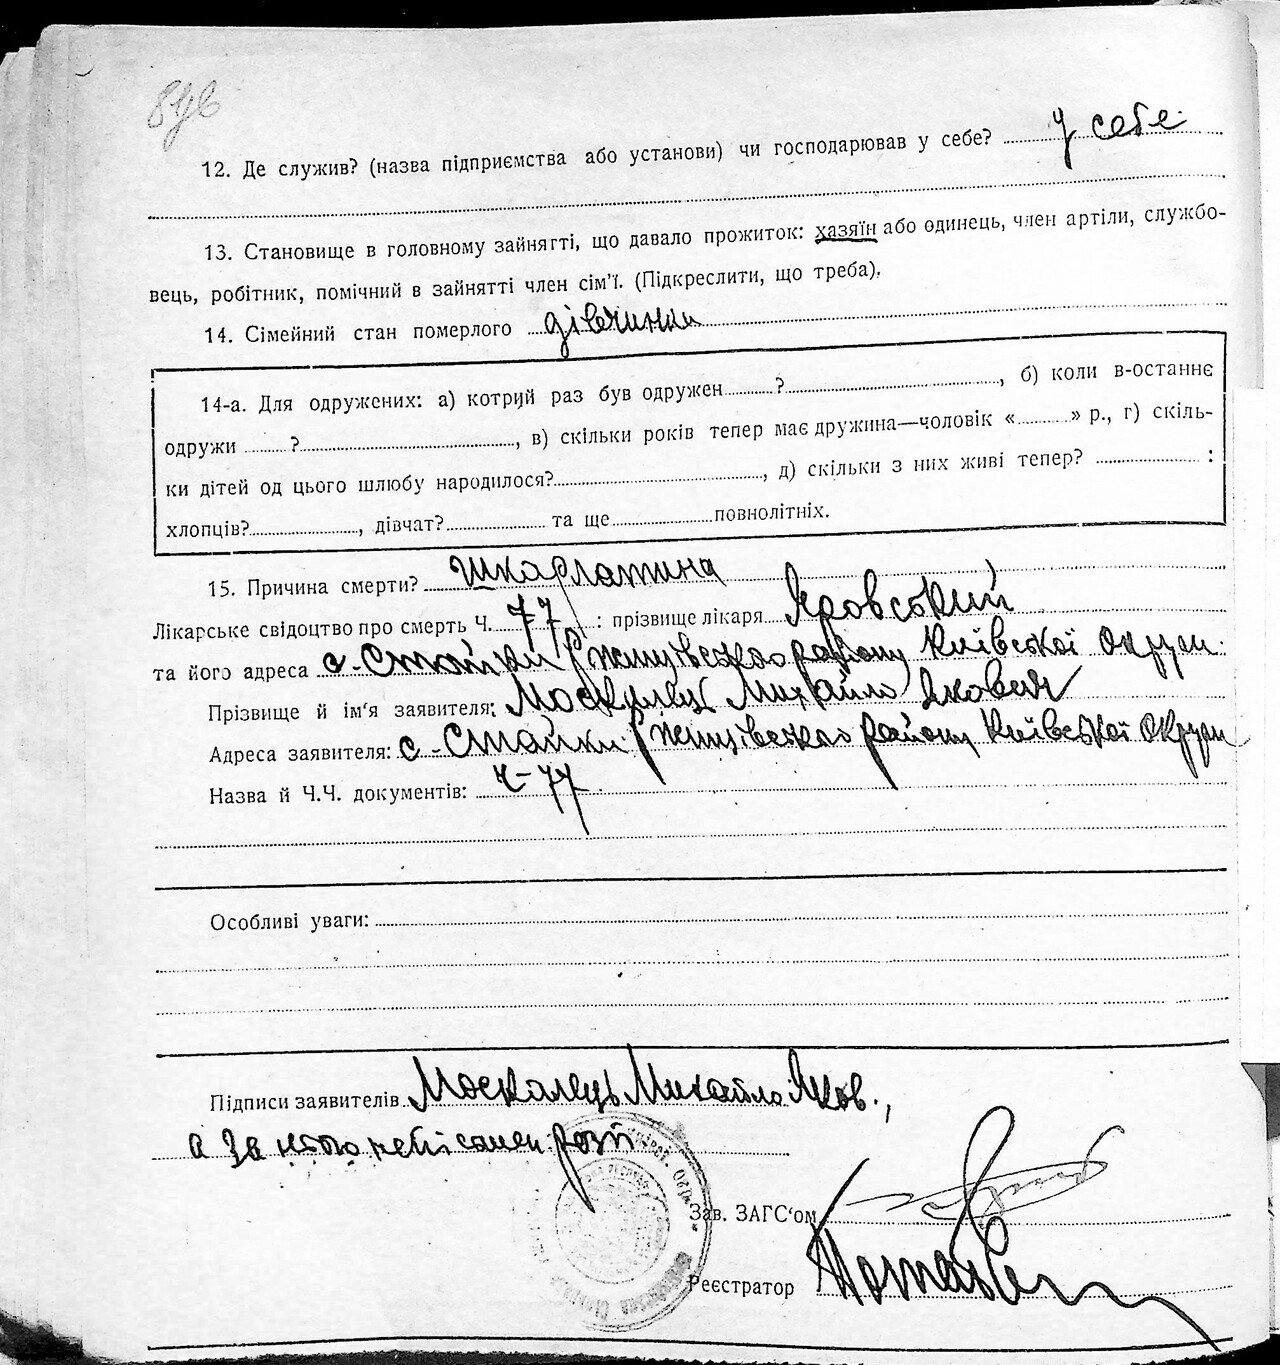 12. Де служив? (назва підприємства або установи) чи господарював у себе? у себе
13. Становище в головному зайнятті, що давало прожиток: хазяїн або одинець, член артіли, службо-
вець, робітник, помічний в зайнятті член сім'ї. (Підкреслити, що треба).
14. Сімейний стан померлого дівчина
14-а. Для одружених: а) котрий раз був одружен ? , б) коли в-останнє
одружи ? , в) скільки років тепер має дружина—чоловік « » р., г) скіль-
ки дітей од цього шлюбу народилося? , д) скільки з них живі тепер? :
хлопців? , дівчат? та ще повнолітніх.
15. Причина смерти? Шкарлатина
Лікарське свідоцтво про смерть Ч. 77 : прізвище лікаря Яровський
та його адреса с. Стайки Ржищівського району Київської Округи
Прізвище й ім'я заявителя: Москалець Михайло
Адреса заявителя: с. Стайки Ржищівського району Київської Округи
Назва й Ч.Ч. документів: ч-77
Особливі уваги:
Підписи заявителів Москалець Михайло Яков.,
а за
Зав. ЗАГС'ом
Реєстратор